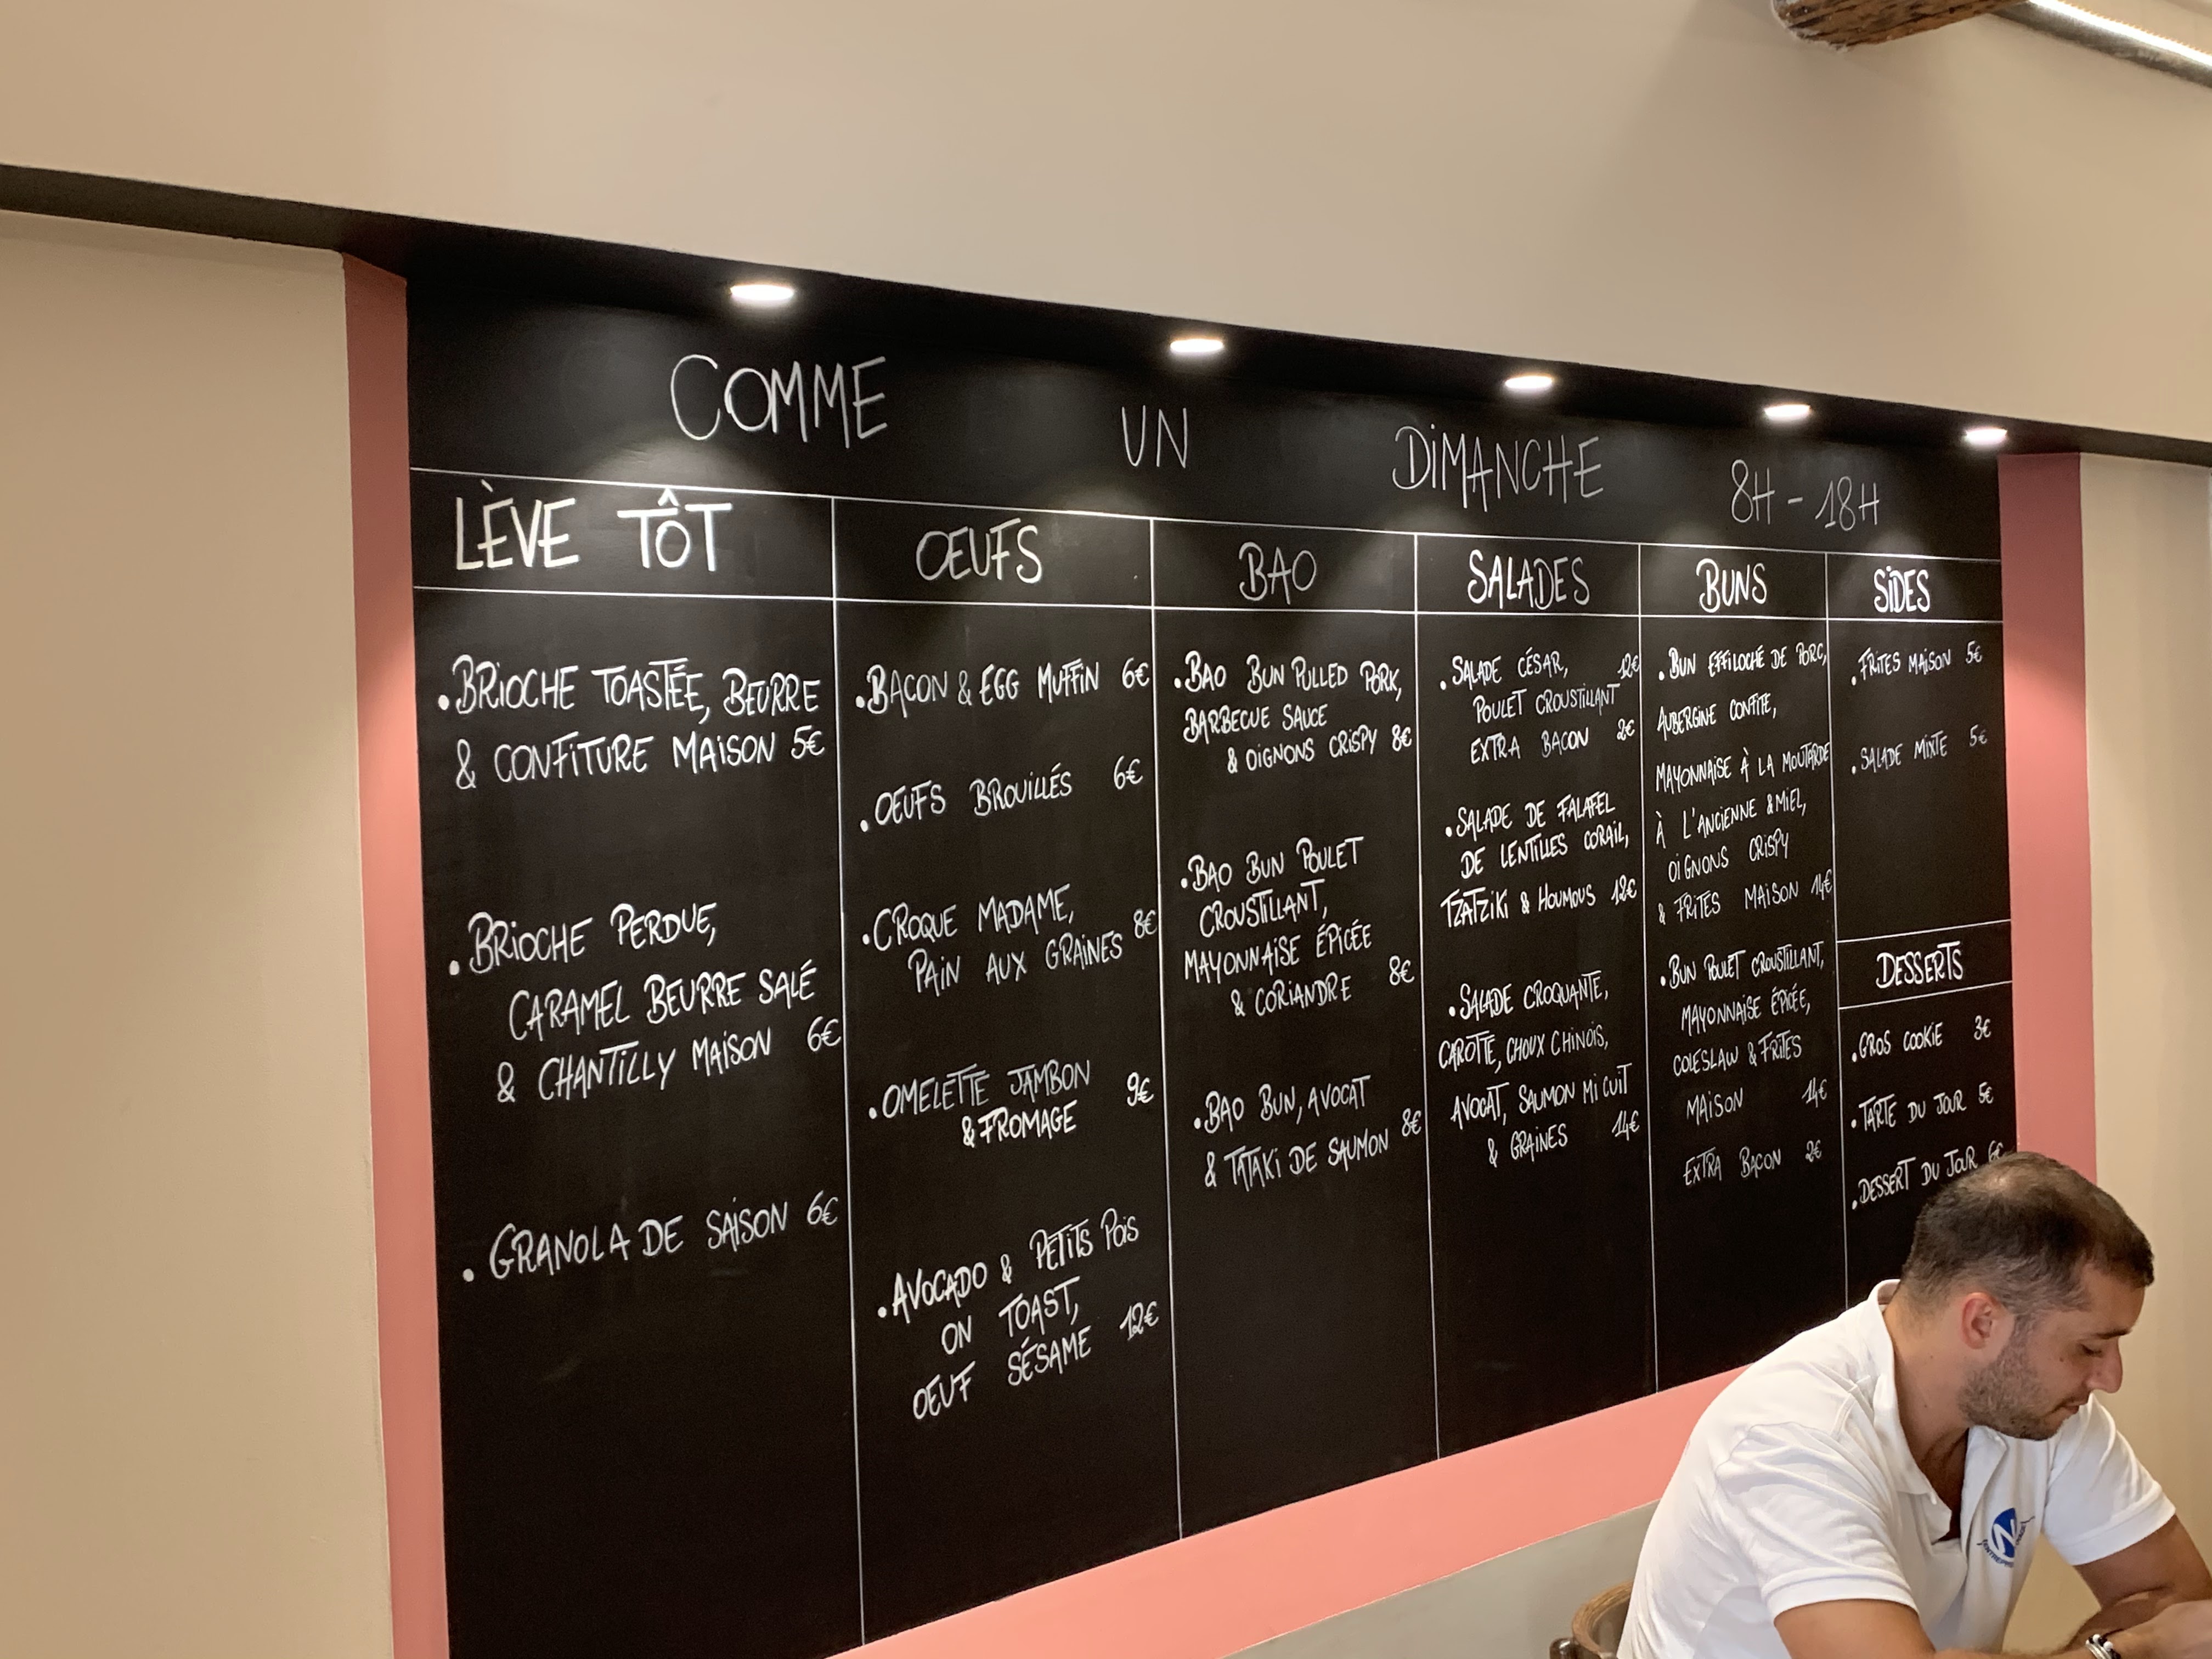 COMME UN DIMANCHE 8H - 18H
LÈVE TÔT
• BRIOCHE TOASTÉE, BEURRE
& CONFITURE MAISON 5€
• BRIOCHE PERDUE,
CARAMEL BEURRE SALÉ
& CHANTILLY MAISON 6€
• GRANOLA DE SAISON 6€
ŒUFS
• BACON & EGG MUFFIN 6€
• ŒUFS BROUILLÉS 6€
• CROQUE MADAME,
PAIN AUX GRAINES 8€
• OMELETTE JAMBON
& FROMAGE 9€
• AVOCADO & PETITS POIS
ON TOAST,
OEUF SÉSAME 12€
BAO
• BAO BUN PULLED PORK,
BARBECUE SAUCE
& OIGNONS CRISPY 8€
• BAO BUN POULET
CROUSTILLANT,
MAYONNAISE ÉPICÉE
& CORIANDRE 8€
• BAO BUN, AVOCAT
& TATAKI DE SAUMON 8€
SALADES
• SALADE CÉSAR, 12€
POULET CROUSTILLANT
EXTRA BACON 2€
• SALADE DE FALAFEL
DE LENTILLES CORAIL,
TZATZIKI & HOUMOUS 12€
• SALADE CROQUANTE,
CAROTTE, CHOUX CHINOIS,
AVOCAT, SAUMON MI CUIT
& GRAINES 14€
BUNS
• BUN EFFILOCHÉ DE PORC,
AUBERGINE CONFITE,
MAYONNAISE À LA MOUTARDE
À L'ANCIENNE & MIEL,
OIGNONS CRISPY
& FRITES MAISON 14€
• BUN POULET CROUSTILLANT,
MAYONNAISE ÉPICÉE,
COLESLAW & FRITES
MAISON 14€
EXTRA BACON 2€
SIDES
• FRITES MAISON 5€
• SALADE MIXTE 5€
DESSERTS
• GROS COOKIE 3€
• TARTE DU JOUR 5€
• DESSERT DU JOUR 6€